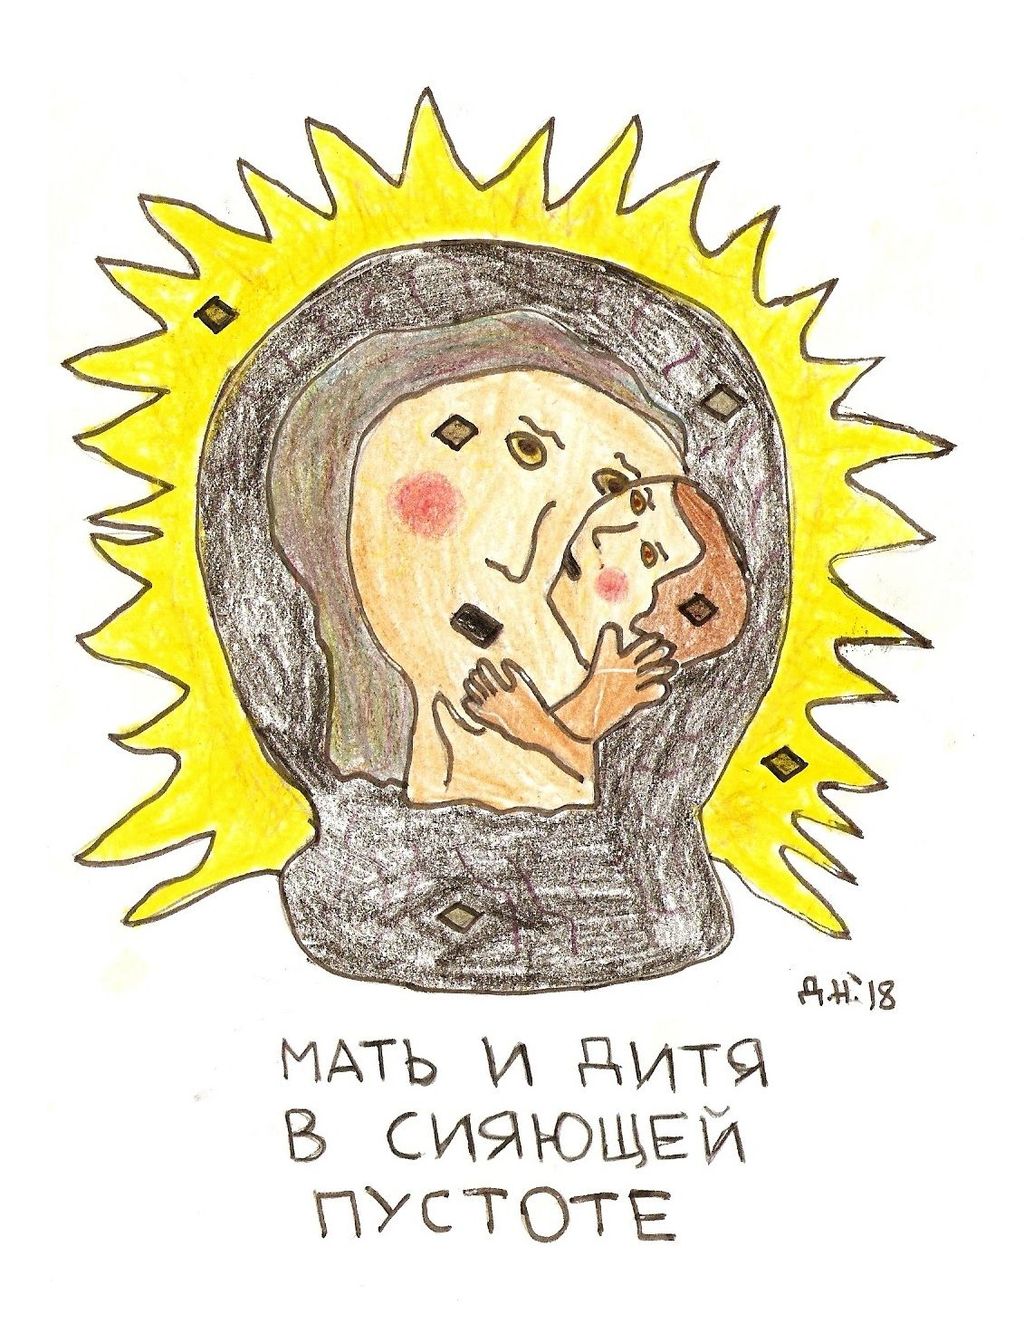 Д.Н.'18
МАТЬ И ДИТЯ
В СИЯЮЩЕЙ
ПУСТОТЕ